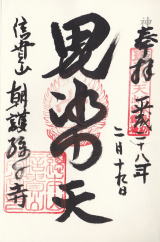 奉拝
平成二十八年
二月十九日
毘沙門天
信貴山 朝護孫子寺